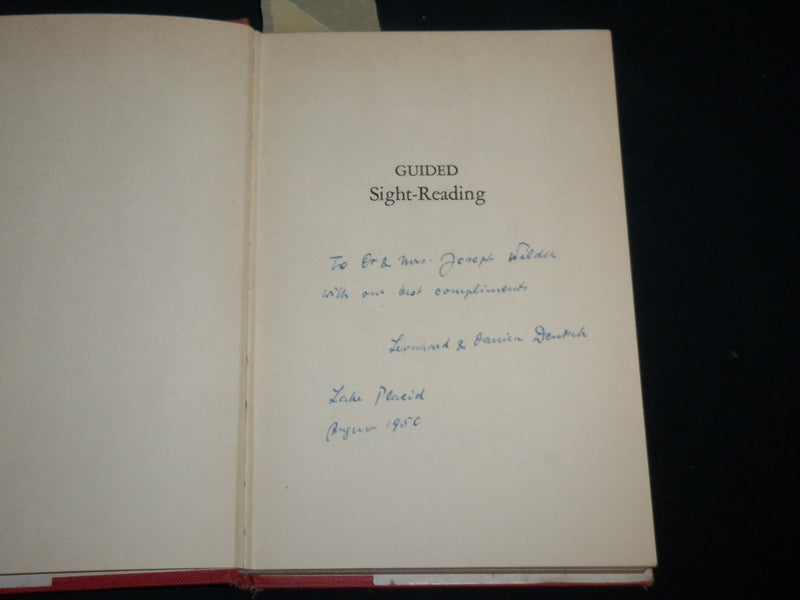 GUIDED
Sight-Reading
To Dr & Mrs. Joseph Wilder
with our best compliments
Leonhard & Danica Deutsch
Lake Placid
August 1950